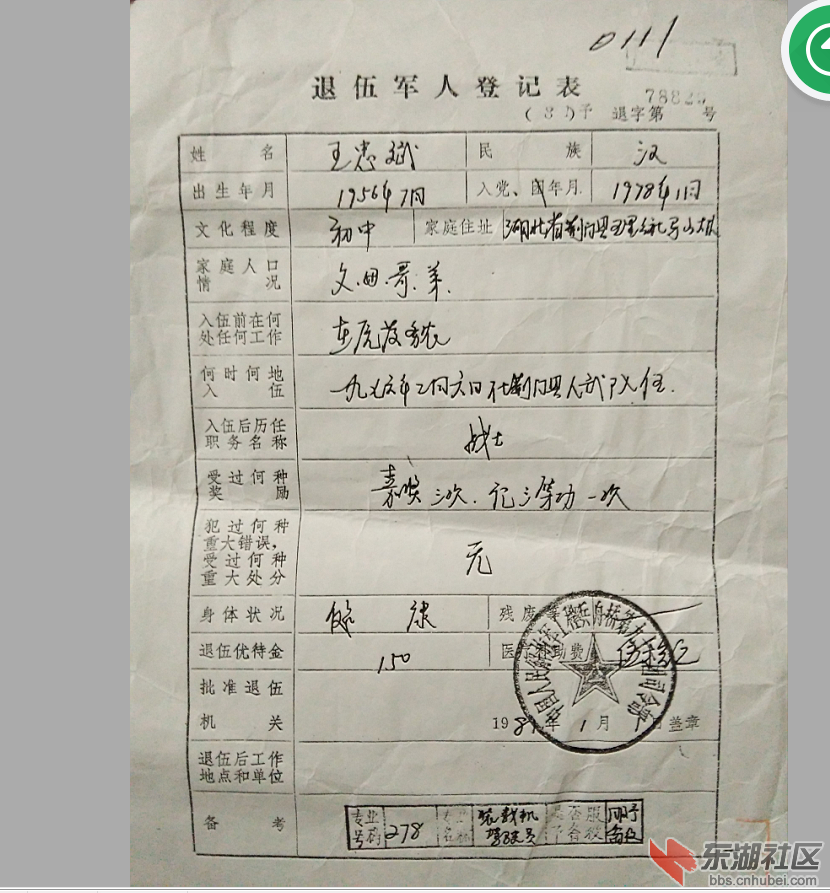 0111
退伍军人登记表
(81)予 退字第 号
姓名 王忠斌 民族 汉
出生年月 1956年7月 入党、团年月 1978年1月
文化程度 初中 家庭住址 湖北省荆门县
家庭人口
情况 父.母.哥.弟.
入伍前在何
处任何工作 务农
何时何地
入伍 一九七六年二月六日 在荆门县人武 入伍.
入伍后历任
职务名称 战士
受过何种
奖励 嘉奖三次.记三等功一次
犯过何种
重大错误,
受过何种
重大处分 无
身体状况 健康 残废
退伍优待金 150 医 补助费
批准退伍
机关 198 年 1月 日盖章
中国人民解放军 舟桥 司令部
退伍后工作
地点和单位
备考 专业号码 278 专业名称 装载机驾驶员 是否服预备役
东湖社区
bbs.cnhubei.com